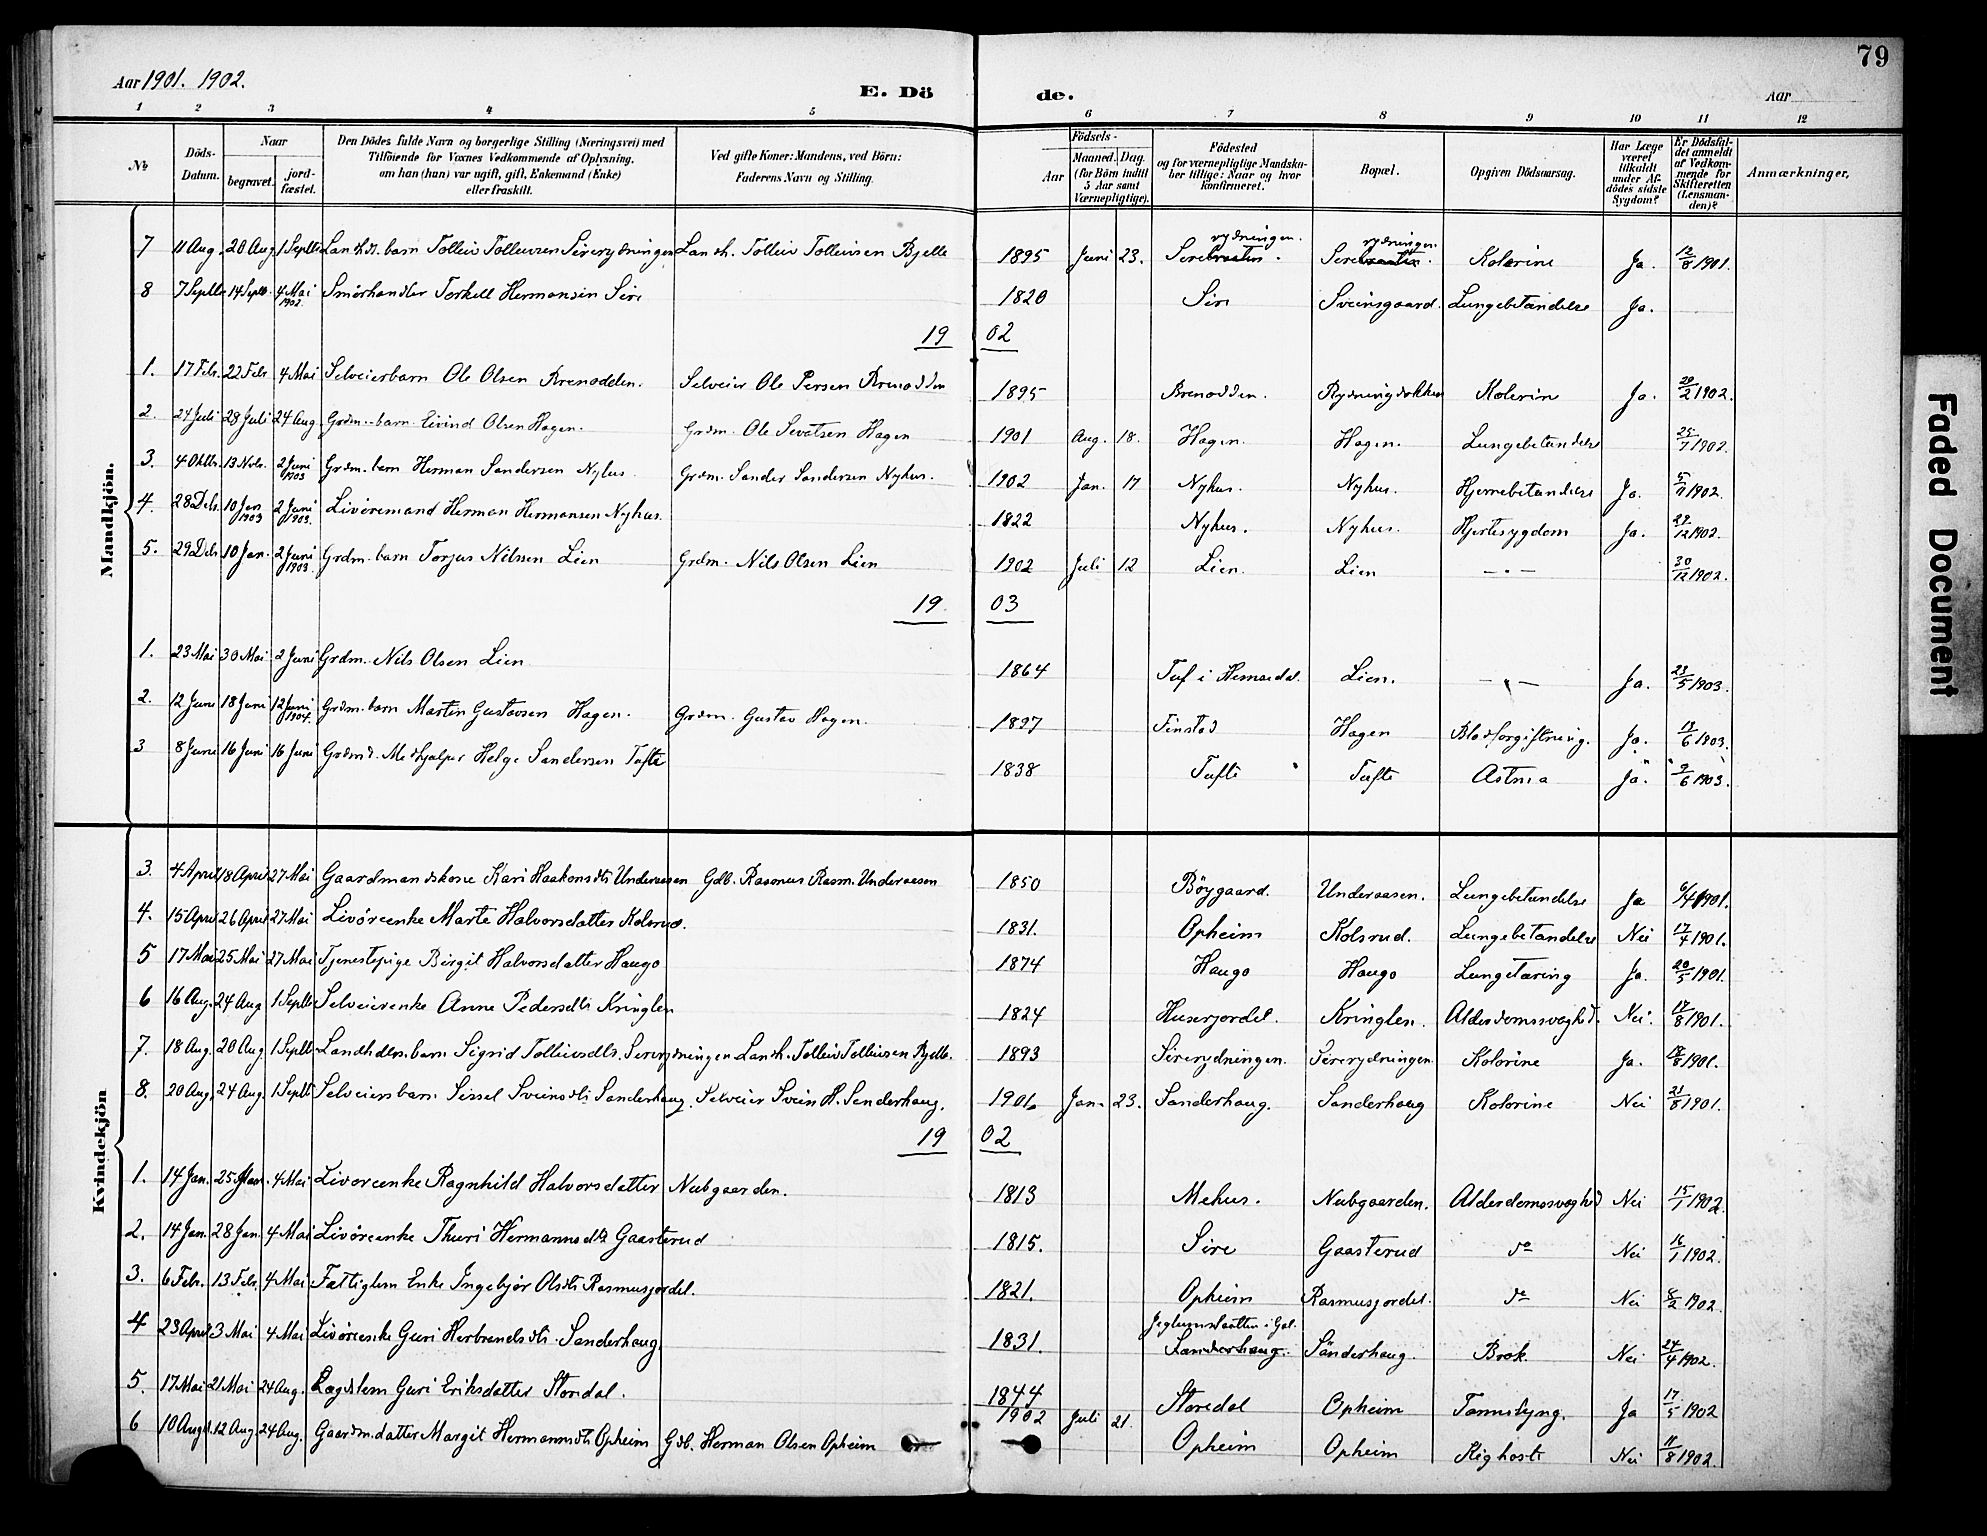 79
Aar 1901. 1902.
E. Dö de.
Aar
1 2 3 4 5 6 7 8 9 10 11 12
No
Döds-Datum.
Naar
begravet.
jord-fæstet.
Den Dödes fulde Navn og borgerlige Stilling (Næringsvei) med
Tilföiende for Voxnes Vedkommende af Oplysning,
om han (hun) var ugift, gift, Enkemand (Enke)
eller fraskilt.
Ved gifte Koner: Mandens, ved Börn:
Faderens Navn og Stilling.
Födsels-
Aar
Maaned. Dag.
(for Börn indtil
5 Aar samt
Værnepligtige).
Födested
og for værnepligtige Mandska-
ber tillige: Naar og hvor
konfirmeret.
Bopæl.
Opgiven Dödsaarsag.
Har Læge
været
tilkaldt
under Af-
dödes sidste
Sygdom?
Er Dödsfal-
det anmeldt
af Vedkom-
mende for
Skifteretten
(Lensman-
den)?
Anmærkninger.
Mandkjön.
7 11 Aug. 20 Aug 1 Septbr Landh.ds. barn Tolleiv Tolleivsen Sirerydningen Landh. Tolleiv Tolleivsen Bjelle 1895 Juni 23. Sirerydningen. Sirerydningen. Kolerine Ja. 12/8 1901.
8 7 Septbr 14 Septb. 4 Mai 1902. Smörhandler Torkell Hermansen Sire 1820 Sire Sveinsgaard. Lungebetændelse Ja.
1902
1. 17 Febr. 22 Febr 4 Mai Selveierbarn Ole Olsen Brenodden. Selveier Ole Persen Brenodden 1895 Brenodden. Rydningdokken Kolerin Ja. 20/2 1902.
2. 24 Juli 28 Juli 24 Aug Grdm.-barn Eivind Olsen Hagen. Grdm. Ole Sevatsen Hagen 1901 Aug. 18. Hagen. Hagen. Lungebetændelse 25/7 1902.
3. 4 Oktbr. 13 Novbr. 2 Juni 1903 Grdm. barn Herman Sandersen Nyhus. Grdm. Sander Sandersen Nyhus. 1902 Jan. 17 Nyhus. Nyhus. Hjernebetændelse Ja. 1902.
4. 28 Debr. 10 Jan 1903 2 Juni 1903. Livöremand Herman Hermansen Nyhus. 1822 Nyhus. Nyhus. Hjertesygdom Ja. 29/12 1902.
5. 29 Debr 10 Jan. 2 Juni 1903. Grdm. barn Torjus Nilssen Lien Grdm. Nils Olsen Lien 1902 Juli 12 Lien. Lien — . — 30/12 1902.
1903
1. 23 Mai 30 Mai 2 Juni Grdm. Nils Olsen Lien 1864 Tuf i Hemsedal. Lien. — , — Ja. 23/5 1903.
2. 12 Juni 18 Juni 12 Juni 1904. Grdm. barn Martin Gustavsen Hagen. Grdm. Gustav Hagen. 1897 Finstad Hagen Blodforgiftning. Ja. 13/6 1903.
3 8 Juni 16 Juni 16 Juni Grdmd. Medhjælper Helge Sandersen Tufte 1838 Tufte Tufte Astma Ja. 9/6 1903.
Kvindekjön
3. 4 April 18 April 27 Mai Gaardmandskone Kari Haakonsdtr Underaasen Gdb. Rasmus Rasm. Underaasen 1850 Böygaard. Underaasen. Lungebetændelse Ja 6/4 1901.
4. 15 April 26 April 27 Mai Livöreenke Marte Halvorsdatter Kolsrud. 1831. Opheim Kolsrud. Lungebetændelse Nei 17/4 1901.
5 17 Mai 25 Mai 27 Mai Tjenestepige Birgit Halvorsdatter Haugo 1874 Haugo Haugo Lungetæring Ja. 20/5 1901.
6 16 Aug. 24 Aug 1 Septbr Selveierenke Anne Pedersdtr Kringlen 1824 Huserjordet. Kringlen. Alderdomssvaghed. Nei. 17/8 1901.
7. 18 Aug. 20 Aug 1 Septbr. Landhdlers. barn Sigrid Tolleivsdtr. Sirerydningen Landh. Tolleiv Tolleivsen Bjelle. 1893 Sirerydningen. Sirerydningen. Kolerine Ja. 1901.
8. 20 Aug. 24 Aug. 1 Septb Selveiersbarn Sissel Sveinsdtr Sanderhaug. Selveier Svein H. Sanderhaug. 1901. Jan. 23. Sanderhaug. Sanderhaug Kolerine Nei 21/8 1901.
1902
1. 14 Jan. 25 Jan. 4 Mai Livöreenke Ragnhild Halvorsdatter Nubgaarden. 1813 Mehus. Nubgaarden. Alderdomssvaghed Nei 15/1 1902.
2. 14 Jan. 28 Jan. 4 Mai Livöreenke Thuri Hermannsdtr Gaasterud 1815. Sire Gaasterud do Nei 16/1 1902.
3. 6 Febr. 13 Febr. 4 Mai Fattiglem Enke Ingebjör Olsdtr Rasmusjordet. 1821. Opheim Rasmusjordet. do Nei 8/2 1902.
4 23 April 3 Mai 4 Mai Livöreenke Guri Herbrandsdtr. Sanderhaug. 1831. Sanderhaug. Sanderhaug. Brok. Nei 24/4 1902.
5. 17 Mai 21 Mai 24 Aug. Lægdslem Guri Eriksdatter Storedal. 1844 Storedal Opheim Tarmslyng. Ja 17/5 1902
6 10 Aug. 12 Aug. 24 Aug. Gaardm.datter Margit Hermannsdtr Opheim Gdb. Herman Olsen Opheim 1902 Juli 21. Opheim Opheim Kighoste Nei 11/8 1902.
Faded Document